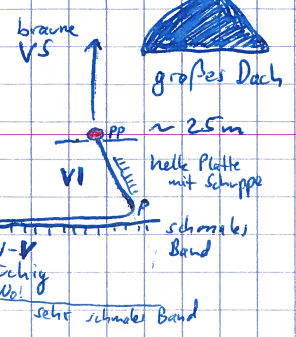 braune
VS
großes Dach
PP
~ 25m
helle Platte
mit Schuppe
VI
P
schmales
Band
-V
No!
sehr schmales Band